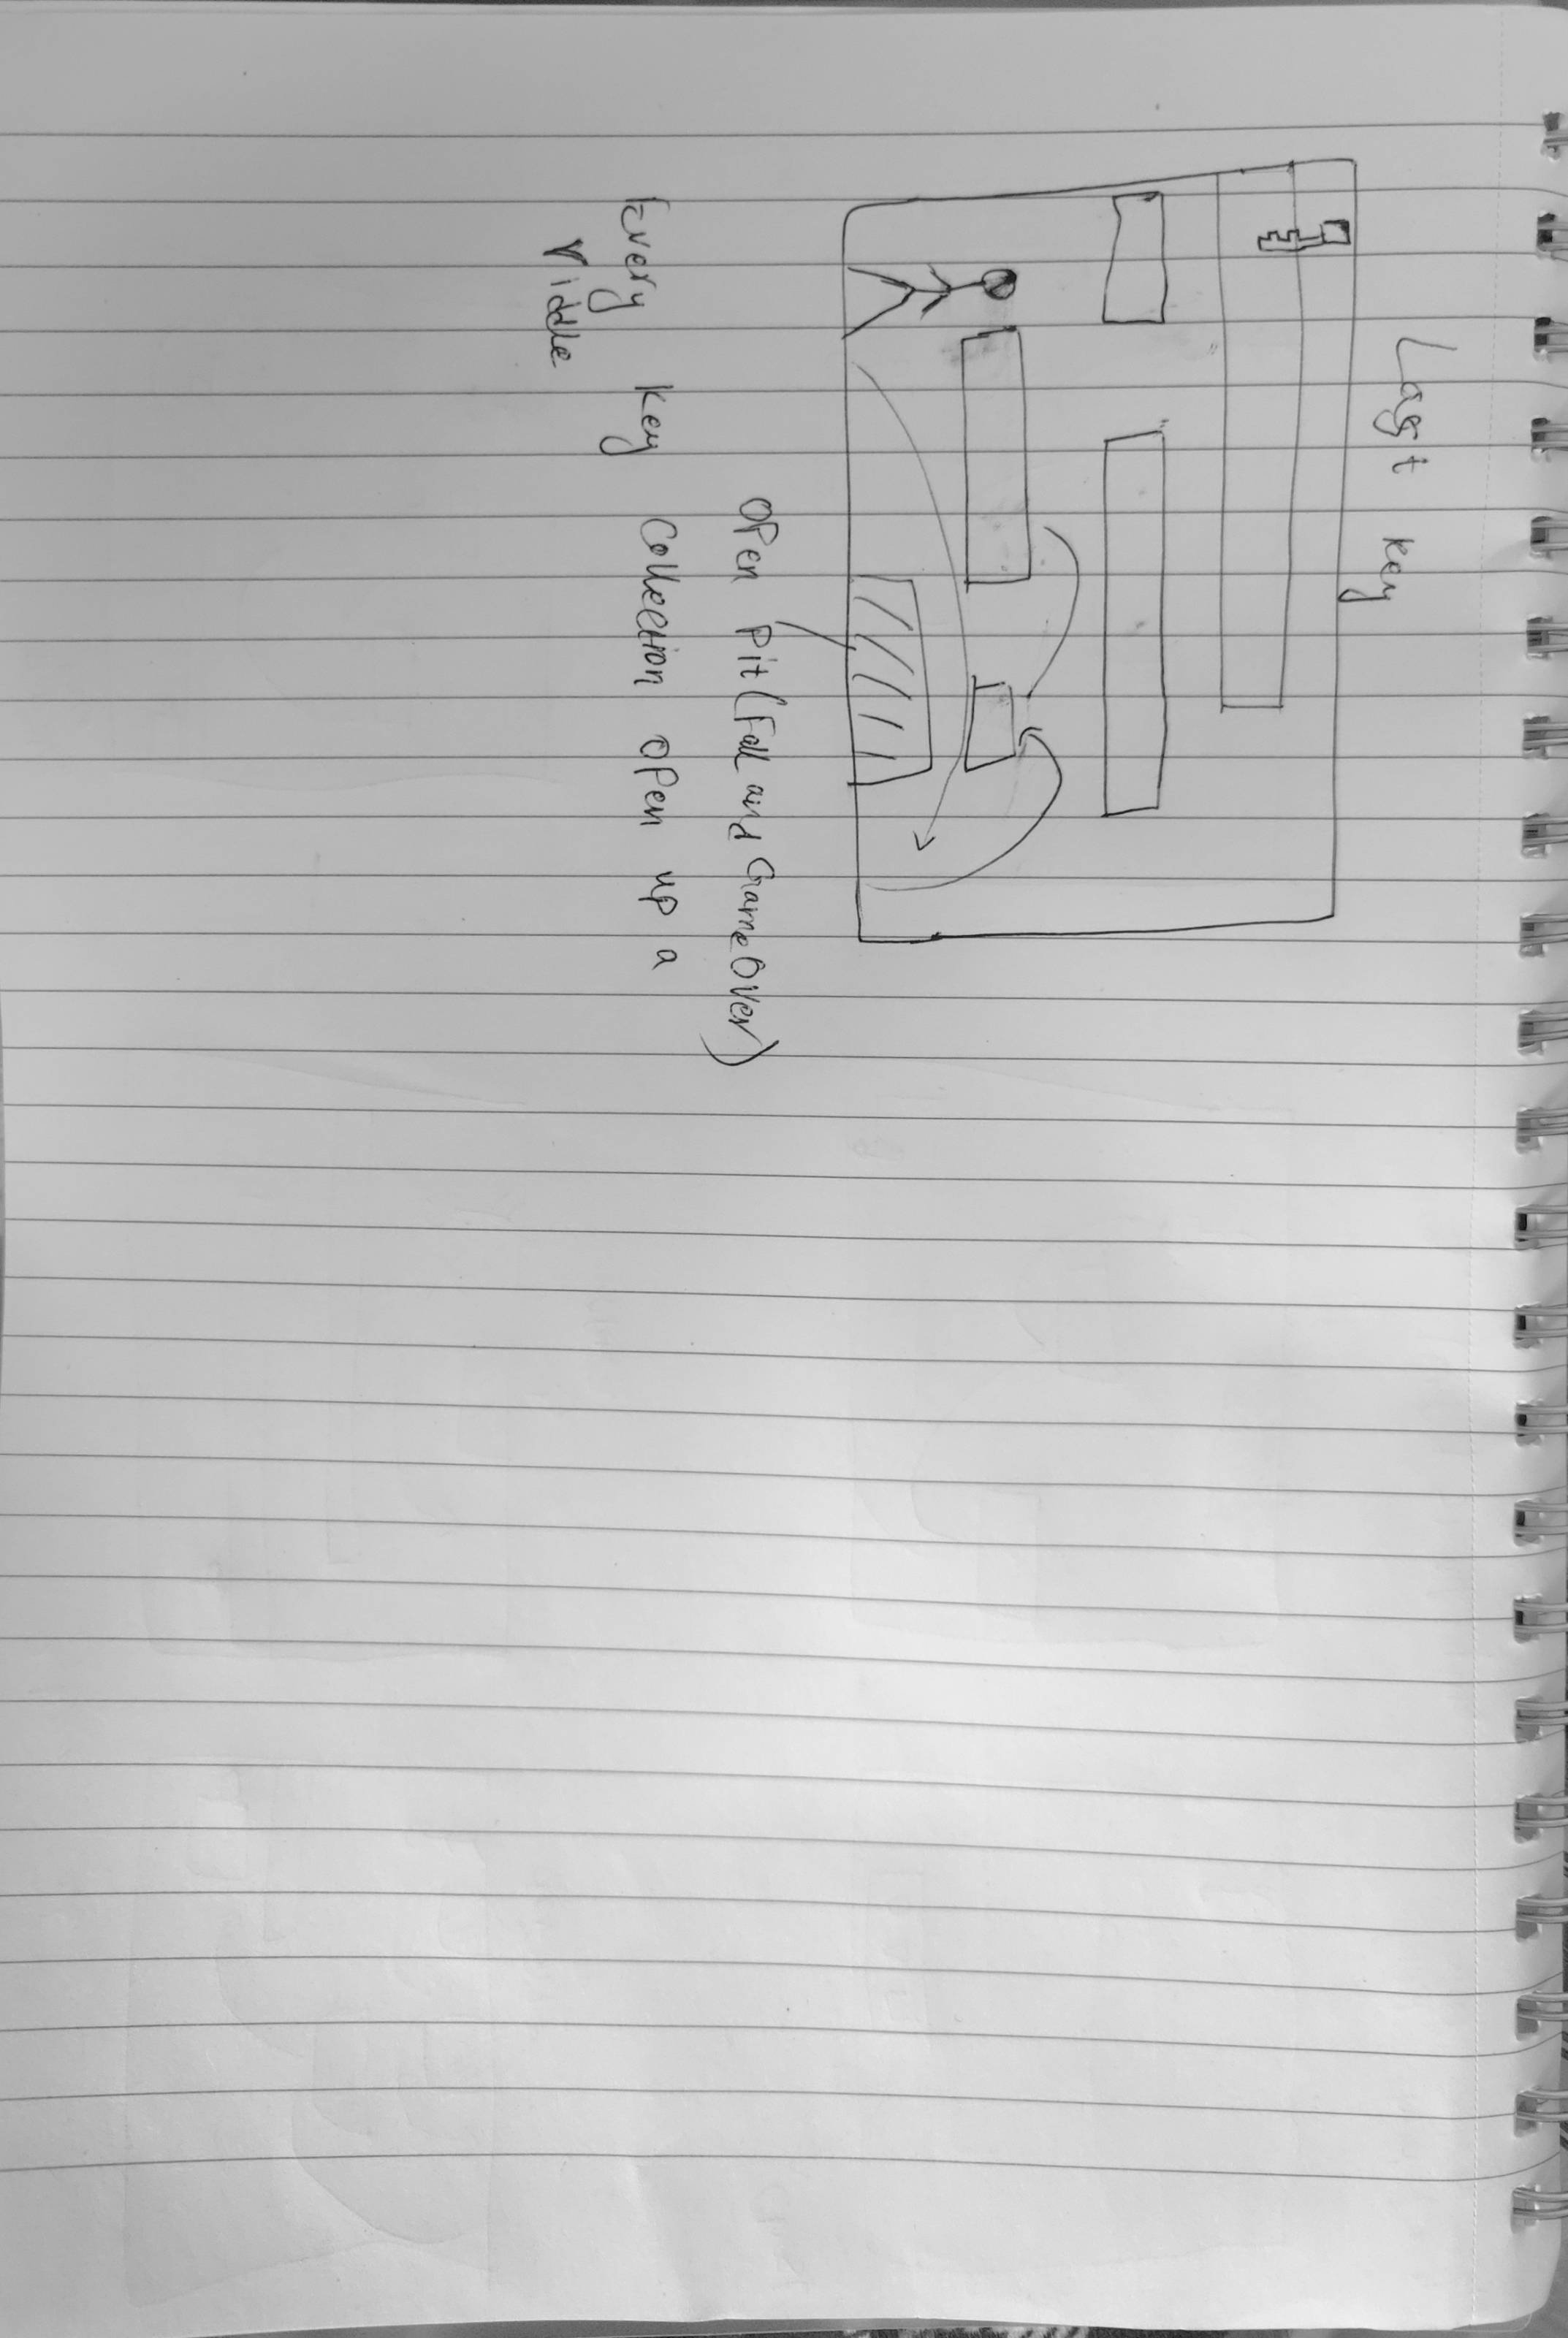 Last key
Open Pit (Fall and Game Over)
Every key Collection open up a
riddle